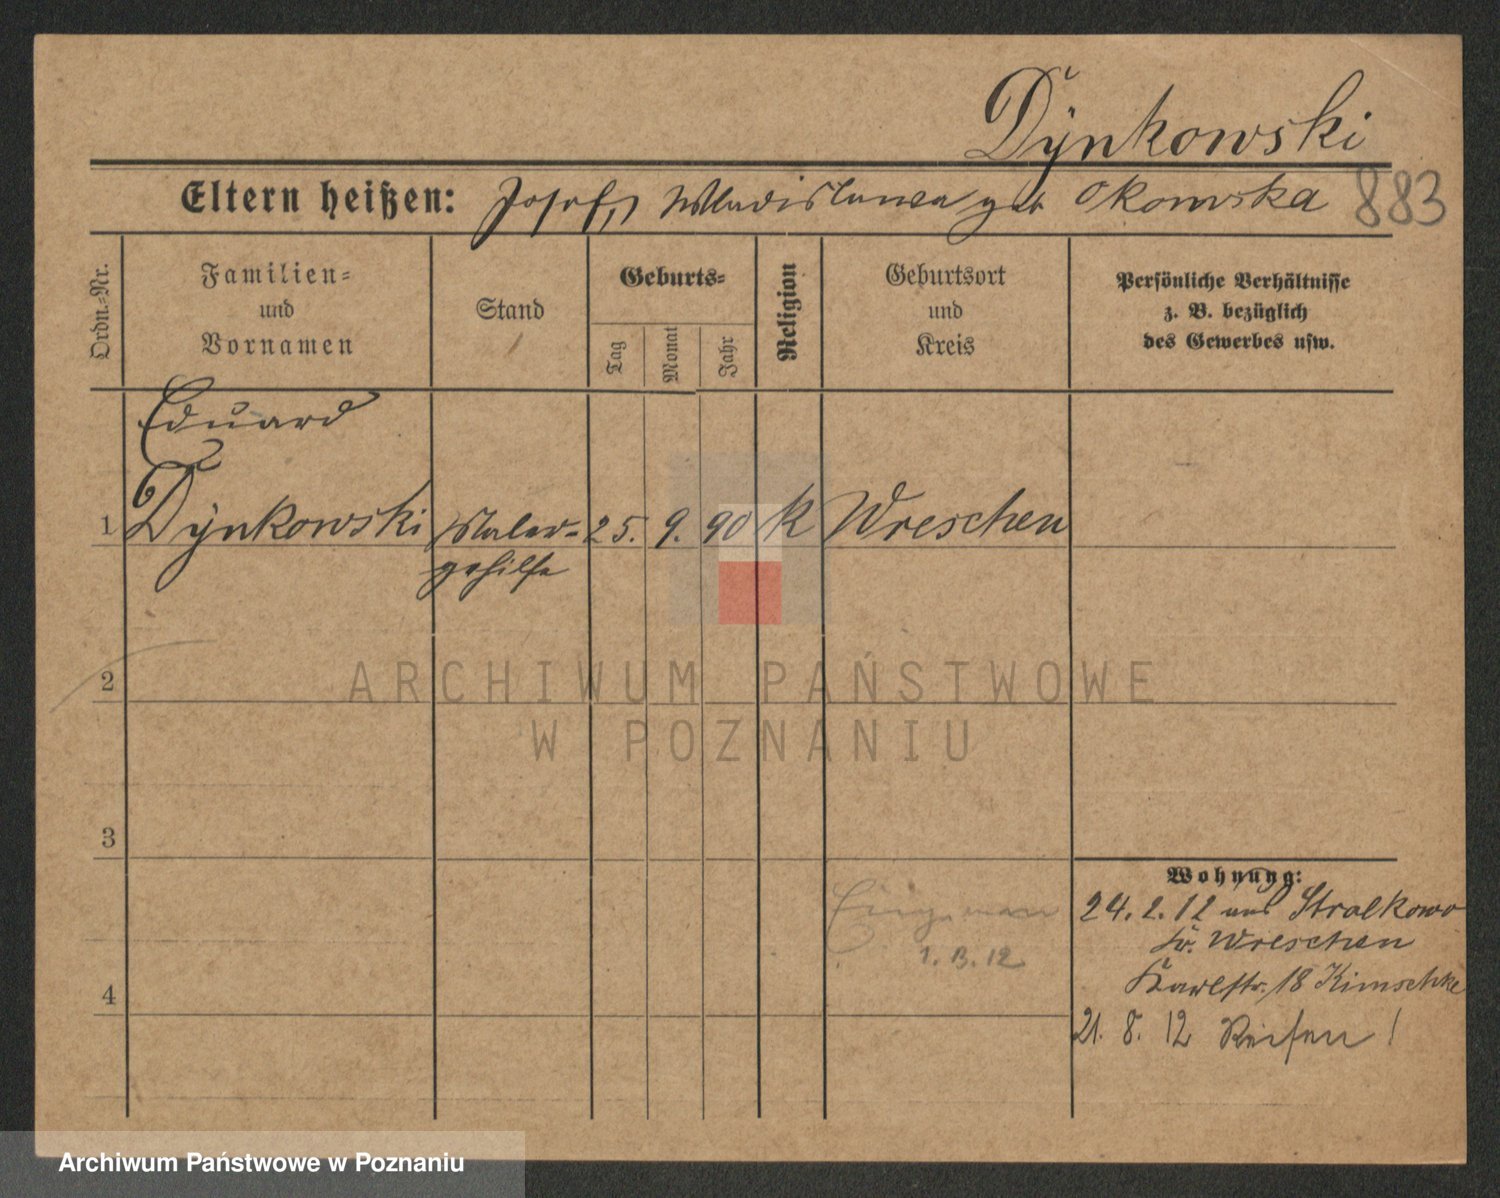 Dÿnkowski
Eltern heißen: Josef, Wladislawa geb Okomska 883
Ordn.-Nr.
Familien-
und
Vornamen
Stand
Geburts-
Tag
Monat
Jahr
Religion
Geburtsort
und
Kreis
Persönliche Verhältnisse
z. B. bezüglich
des Gewerbes usw.
Eduard
1 Dÿnkowski Maler- 25. 9. 90 K Wreschen
gehilfe
2
ARCHIWUM PAŃSTWOWE
W POZNANIU
3
Wohnung:
24. 2. 12 aus Stralkowo
Kr. Wreschen
1. 3. 12
Karlstr. 18 Kimschke
4
21. 8. 12 Reisen!
Archiwum Państwowe w Poznaniu